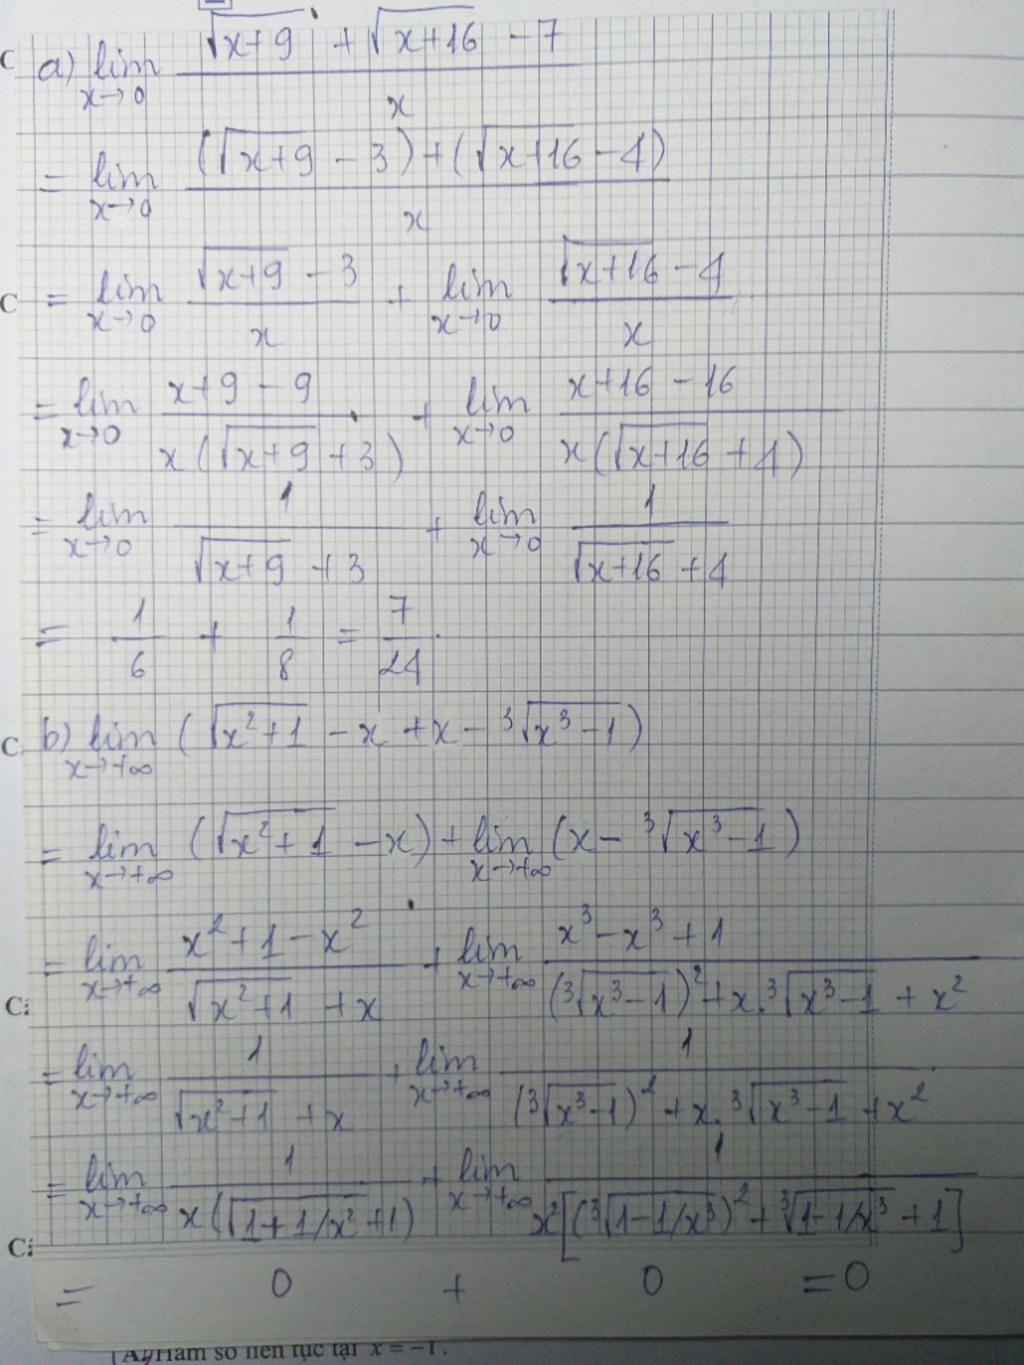 a) lim x→0 (√(x+9) + √(x+16) - 7)/x
= lim x→0 ((√(x+9) - 3) + (√(x+16) - 4))/x
C = lim x→0 (√(x+9) - 3)/x + lim x→0 (√(x+16) - 4)/x
= lim x→0 (x+9 - 9)/(x(√(x+9) + 3)) + lim x→0 (x+16 - 16)/(x(√(x+16) + 4))
= lim x→0 1/(√(x+9) + 3) + lim x→0 1/(√(x+16) + 4)
= 1/6 + 1/8 = 7/24.
C b) lim x→+∞ (√(x²+1) - x + x - ³√(x³-1))
= lim x→+∞ (√(x²+1) - x) + lim x→+∞ (x - ³√(x³-1))
= lim x→+∞ (x²+1-x²)/(√(x²+1) + x) + lim x→+∞ (x³-x³+1)/((³√(x³-1))² + x.³√(x³-1) + x²)
= lim x→+∞ 1/(√(x²+1) + x) + lim x→+∞ 1/((³√(x³-1))² + x.³√(x³-1) + x²)
= lim x→+∞ 1/(x(√(1+1/x²) + 1)) + lim x→+∞ 1/(x²[(³√(1-1/x³))² + ³√(1-1/x³) + 1])
= 0 + 0 = 0
Hàm số liên tục tại x = -1.